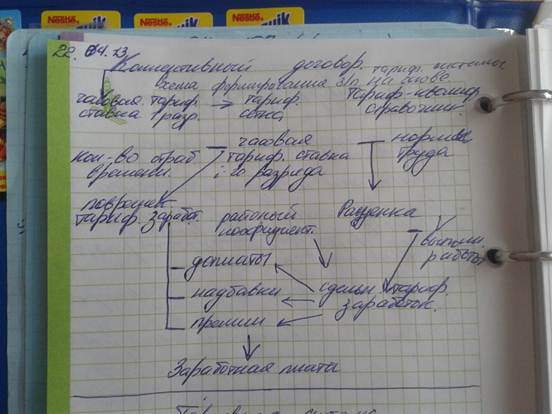 Nestlé
Nestlé
Nestlé
Nesquik
22.04.13
Коллективный договор. тариф. системы
Схема формирования з/п на основе
часовая тариф. → тариф. тариф-квалиф.
ставка 1 разр. сетка справочник
часовая нормы
кол-во отраб тариф. ставка труда
времени i-го разряда
повремен.
тариф. заработ. районный Расценка
коэффициент. выполн.
работы
доплаты
надбавки сдельн. тариф.
премии заработок.
Заработная плата